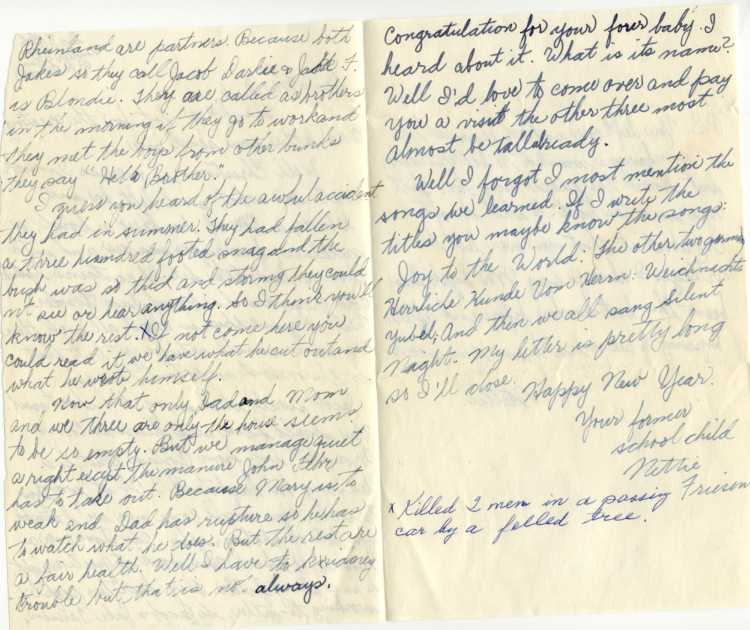 Rheinland are partners. Because both
Jakes so they call Jacob Darlie & Jake F.
is Blondie. They are called as brothers
in the morning if they go to work and
they met the boys from other bunks
they say "Hello Brother".
I guess you heard of the awful accident
they had in summer. They had fallen
a three hundred footed snag and the
bush was so thick and stormy they could
n't see or hear anything. So I think you'll
know the rest. X If not come here you
could read it, we have what he cut out and
what he wrote himself.
Now that only Dad and Mom
and we three are only the house seems
to be so empty. But we manage quiet
a right except the manure John Fehr
has to take out. Because Mary is to
weak and Dad has rupture so he has
to watch what he does. But the rest are
a fair health. Well I have to kidney
trouble but that is no. always.
Congratulation for your forer baby. I
heard about it. What is its name?
Well I'd love to come over and pay
you a visit the other three most
almost be tall already.
Well I forgot I most mention the
songs we learned. If I write the
titles you maybe know the songs:
Joy to the World: The other two german
Herrliche Kunde Vom Herrn: Weichnachts
Yubel; And then we all sang Silent
Night. My letter is pretty long
so I'll close. Happy New Year.
Your former
school child
Nettie
Friesen
x Killed 2 men in a passing
car by a felled tree.